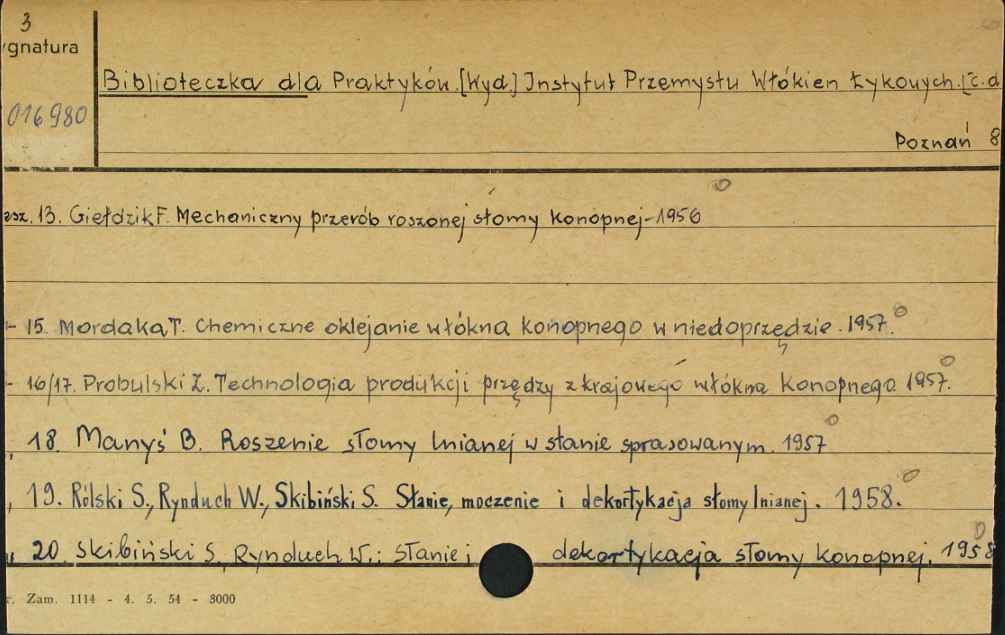 3
ygnatura
016980
Biblioteczka dla Praktyków.[Wyd.] Instytut Przemysłu Włókien Łykowych.[c.d
Poznań 8
zesz. 13. Giełdzik F. Mechaniczny przerób roszonej słomy konopnej-1956
- 15. Mordaka T. Chemiczne oklejanie włókna konopnego w niedoprzędzie. 1957.
- 16/17. Probulski Z. Technologia produkcji przędzy z krajowego włókna konopnego 1957.
„ 18. Manyś B. Roszenie słomy lnianej w stanie sprasowanym. 1957
„ 19. Rólski S., Rynduch W., Skibiński S. Słanie, moczenie i dekortykacja słomy lnianej. 1958.
„ 20. Skibiński S., Rynduch W.: Słanie i dekortykacja słomy konopnej. 1958
r. Zam. 1114 - 4. 5. 54 - 3000